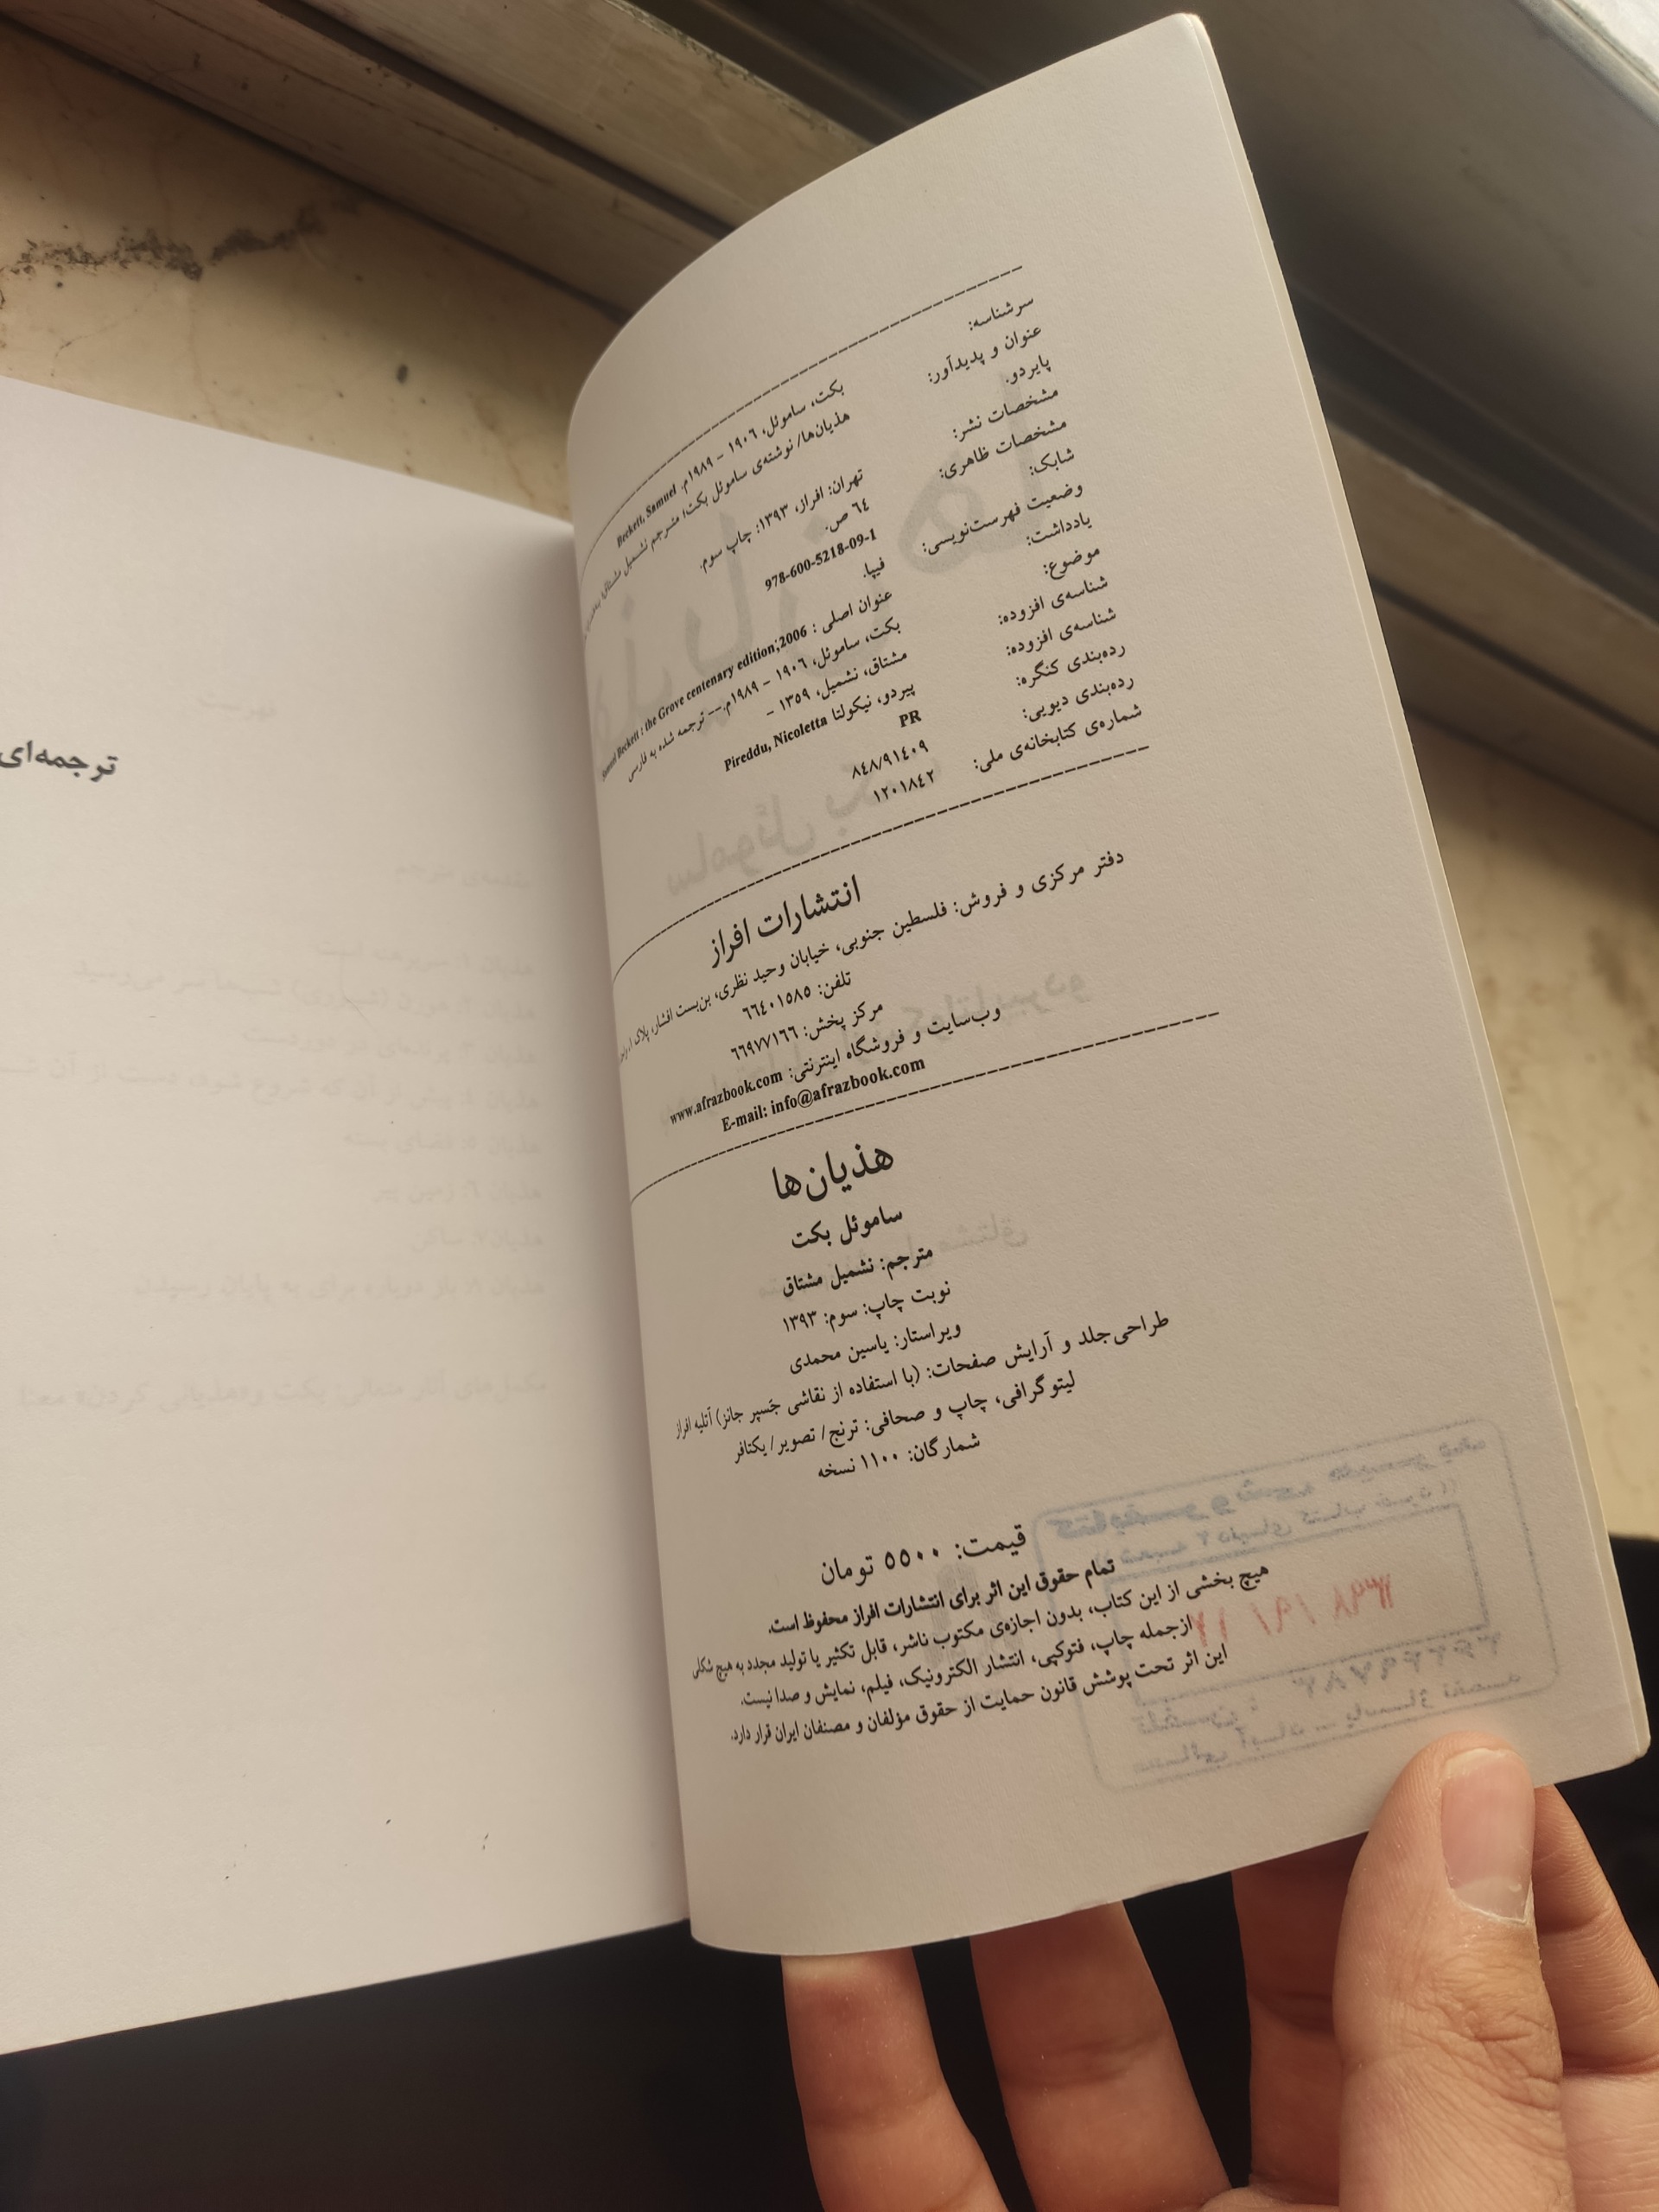 سرشناسه: بکت، ساموئل، ۱۹۰٦ – ۱۹۸۹م. Beckett, Samuel
عنوان و پدیدآور: هذیان‌ها/ نوشته‌ی ساموئل بکت؛ مترجم نشمیل مشتاق؛
پایردو.
مشخصات نشر: تهران: افراز، ۱۳۹۳: چاپ سوم.
مشخصات ظاهری: ٦٤ ص.
شابک: 978-600-5218-09-1
وضعیت فهرست‌نویسی: فیپا.
یادداشت: عنوان اصلی : Samuel Beckett : the Grove centenary edition;2006
موضوع: بکت، ساموئل، ۱۹۰٦ – ۱۹۸۹م.— ترجمه شده به فارسی
شناسه‌ی افزوده: مشتاق، نشمیل، ۱۳٥۹ –
شناسه‌ی افزوده: پیردو، نیکولتا Pireddu, Nicoletta
رده‌بندی کنگره: PR
رده‌بندی دیویی: ۸٤۸/۹۱٤۰۹
شماره‌ی کتابخانه‌ی ملی: ۱۲۰۱۸٤۲
انتشارات افراز
دفتر مرکزی و فروش: فلسطین جنوبی، خیابان وحید نظری، بن‌بست افشار، پلاک ۱،
تلفن: ٦٦٤۰۱٥۸٥
مرکز پخش: ٦٦۹۷۷۱٦٦
وب‌سایت و فروشگاه اینترنتی: www.afrazbook.com
E-mail: info@afrazbook.com
هذیان‌ها
ساموئل بکت
مترجم: نشمیل مشتاق
نوبت چاپ: سوم: ۱۳۹۳
ویراستار: یاسین محمدی
طراحی‌جلد و آرایش صفحات: (با استفاده از نقاشی جَسپر جانز) آتلیه افراز
لیتوگرافی، چاپ و صحافی: ترنج/ تصویر/ یکتافر
شمارگان: ۱۱۰۰ نسخه
قیمت: ٥٥۰۰ تومان
تمام حقوق این اثر برای انتشارات افراز محفوظ است.
هیچ بخشی از این کتاب، بدون اجازه‌ی مکتوب ناشر، قابل تکثیر یا تولید مجدد به هیچ شکلی
ازجمله چاپ، فتوکپی، انتشار الکترونیک، فیلم، نمایش و صدا نیست.
این اثر تحت پوشش قانون حمایت از حقوق مؤلفان و مصنفان ایران قرار دارد.
ترجمه‌ای